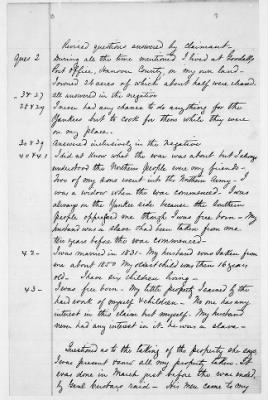 Revised questions answered by claimant.
Ques 2 During all the time mentioned I lived at Goodalls
Post Office, Hanover County, on my own land.
I owned 24 acres of which about half were cleared.
3 & 27 all answered in the negative
28 & 29 I never had any chance to do anything for the
Yankees but to cook for them while they were
on my place.
30 & 39 Answered inclusively, in the negative
40 & 41 I did not know what the war was about but I always
understood the Northern people were my friends.
Two of my sons went into the Northern Army. I
was a widow when the war commenced. I was
always on the Yankee side because the Southern
People oppressed me though I was free born. My
husband was a slave & had been taken from me
ten years before the war commenced.
42 I was married in 1831. My husband was taken from
me about 1850 My oldest child was then 16 years
old. I have six children living.
43 I was free born. My little property I earned by the
hard work of myself & children. No one has any
interest in this claim but myself. My husband
never had any interest in it. he was a slave.
Questioned as to the taking of the property she says
I was present & saw all my property taken. It
was done in March just before the war ended,
by Genl Custars raid. His men came to my